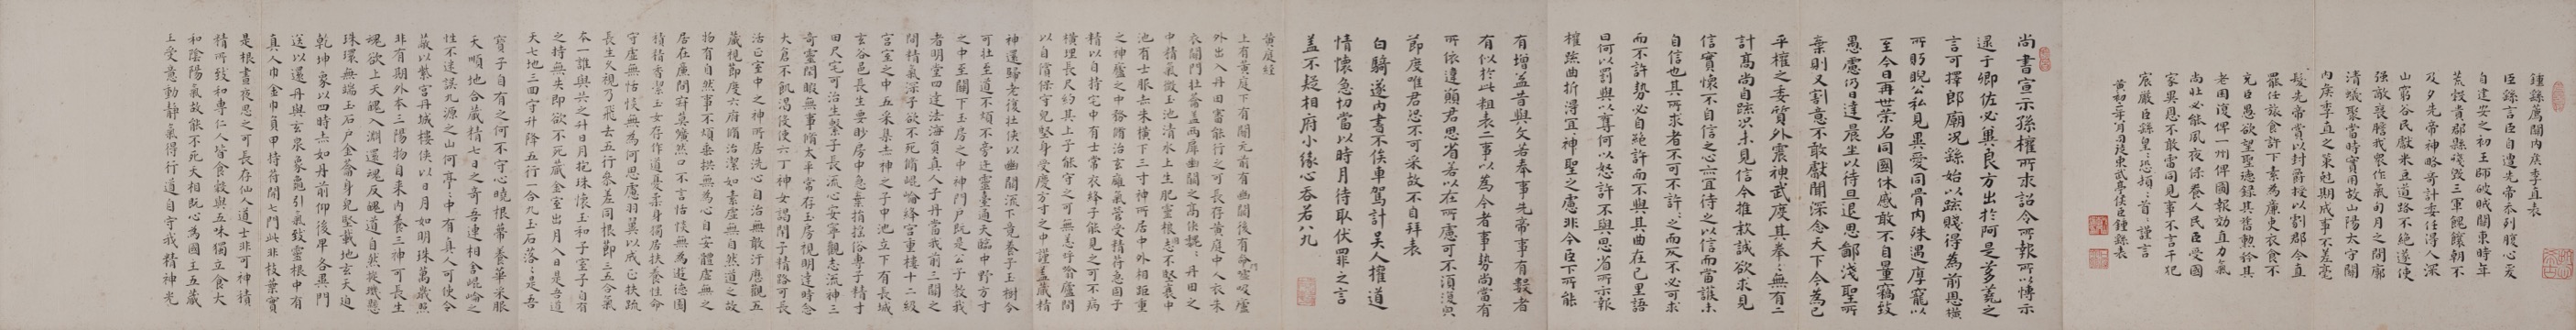 鍾繇薦關內侯季直表
臣繇言臣自遭先帝忝列腹心爰
自建安之初王師破賊關東時年
荒穀貴郡縣殘毀三軍餽饟朝不
及夕先帝神略奇計委任得人深
山窮谷民獻米豆道路不絕遂使
強敵喪膽我眾作氣旬月之間廓
清蟻聚當時實用故山陽太守關
內侯季直之策剋期成事不差豪
髮先帝賞以封爵授以劇郡今直
罷任旅食許下素為廉吏衣食不
充臣愚欲望聖德錄其舊勳矜其
老困復俾一州俾圖報效直力氣
尚壯必能夙夜保養人民臣受國
家異恩不敢雷同見事不言干犯
宸嚴臣繇皇皇恐頓首頓首謹言
黃初二年八月日司徒東武亭侯臣鍾繇表
尚書宣示孫權所求詔令所報所以博示
逮于卿佐必冀良方出於阿是芻蕘之
言可擇郎廟況繇始以疏賤得為前恩橫
所盻睨公私見異愛同骨肉殊遇厚寵以
至今日再世榮名同國休慼敢不自量竊致
愚慮仍日達晨坐以待旦退思鄙淺聖所
棄則又割意不敢獻聞深念天下今為已
平權之委質外震神武度其拳拳無有二
計高尚自疏況未見信今推款誠欲求見
信實懷不自信之心亦宜待之以信而當護其未
自信也其所求者不可不許許之而反不必可求
而不許勢必自絕許而不與其曲在己里語
曰何以罰與以奪何以怒許不與思省所示報
權疏曲折得宜神聖之慮非今臣下所能
有增益昔與文若奉事先帝事有數者
有似於此粗表二事以為今者事勢尚當有
所依違願君思省若以在所慮可不須復與
節度唯君恐不可采故不自拜表
白騎遂內書不俟車駕計吳人權道
情懷急切當以時月待取伏罪之言
蓋不疑相府小緣心吞若八九
黃庭經
上有黃庭下有關元前有幽闕後有命門噓吸廬
外出入丹田審能行之可長存黃庭中人衣朱
衣關門壯籥蓋兩扉幽闕俠之高巍巍丹田之
中精氣微玉池清水上生肥靈根堅志不衰中
池有士服赤朱橫下三寸神所居中外相距重
閉之神廬之中務脩治玄膺氣管受精符急固子
精以自持宅中有士常衣絳子能見之可不病
橫理長尺約其上子能守之可無恙呼噏廬間
以自償保守兒堅身受慶方寸之中謹蓋藏精
神還歸老復壯俠以幽闕流下竟養子玉樹令
可壯至道不煩不旁迕靈臺通天臨中野方寸
之中至關下玉房之中神門戶既是公子教我
者明堂四達法海員真人子丹當我前三關之
間精氣深子欲不死脩崐崘絳宮重樓十二級
宮室之中五采集赤神之子中池立下有長城
玄谷邑長生要眇房中急棄捐搖俗專子精寸
田尺宅可治生繫子長流心安寧觀志流神三
奇靈閒暇無事脩太平常存玉房視明達時念
大倉不飢渴役使六丁神女謁閉子精路可長
活正室之中神所居洗心自治無敢汙歷觀五
藏視節度六府脩治潔如素虛無自然道之故
物有自然事不煩垂拱無為心自安體虛無之
居在廉間寂莫曠然口不言恬惔無為遊德園
積精香潔玉女存作道憂柔身獨居扶養性命
守虛無恬惔無為何思慮羽翼以成正扶疏
長生久視乃飛去五行參差同根節三五合氣
本一誰與共之升日月抱珠懷玉和子室子自有
之持無失即欲不死藏金室出月入日是吾道
天七地三回守升降五行一合九玉石落落是吾
寶子自有之何不守心曉根蒂養華采服
天順地合藏精七日之奇吾連相合崐崘之
性不迷誤九源之山何亭亭中有真人可使令
蔽以紫宮丹城樓俠以日月如明珠萬歲照
非有期外本三陽物自來內養三神可長生
魂欲上天魄入淵還魂反魄道自然璇璣懸
珠環無端玉石戶金籥身兒堅載地玄天迫
乾坤象以四時赤如丹前仰後卑各異門
送以還丹與玄泉象龜引氣致靈根中有
真人巾金巾負甲持符開七門此非枝葉實
是根晝夜思之可長存仙人道士非可神積
精所致和專仁人皆食穀與五味獨立食大
和陰陽氣故能不死天相既心為國主五藏
王受意動靜氣得行道自守我精神光